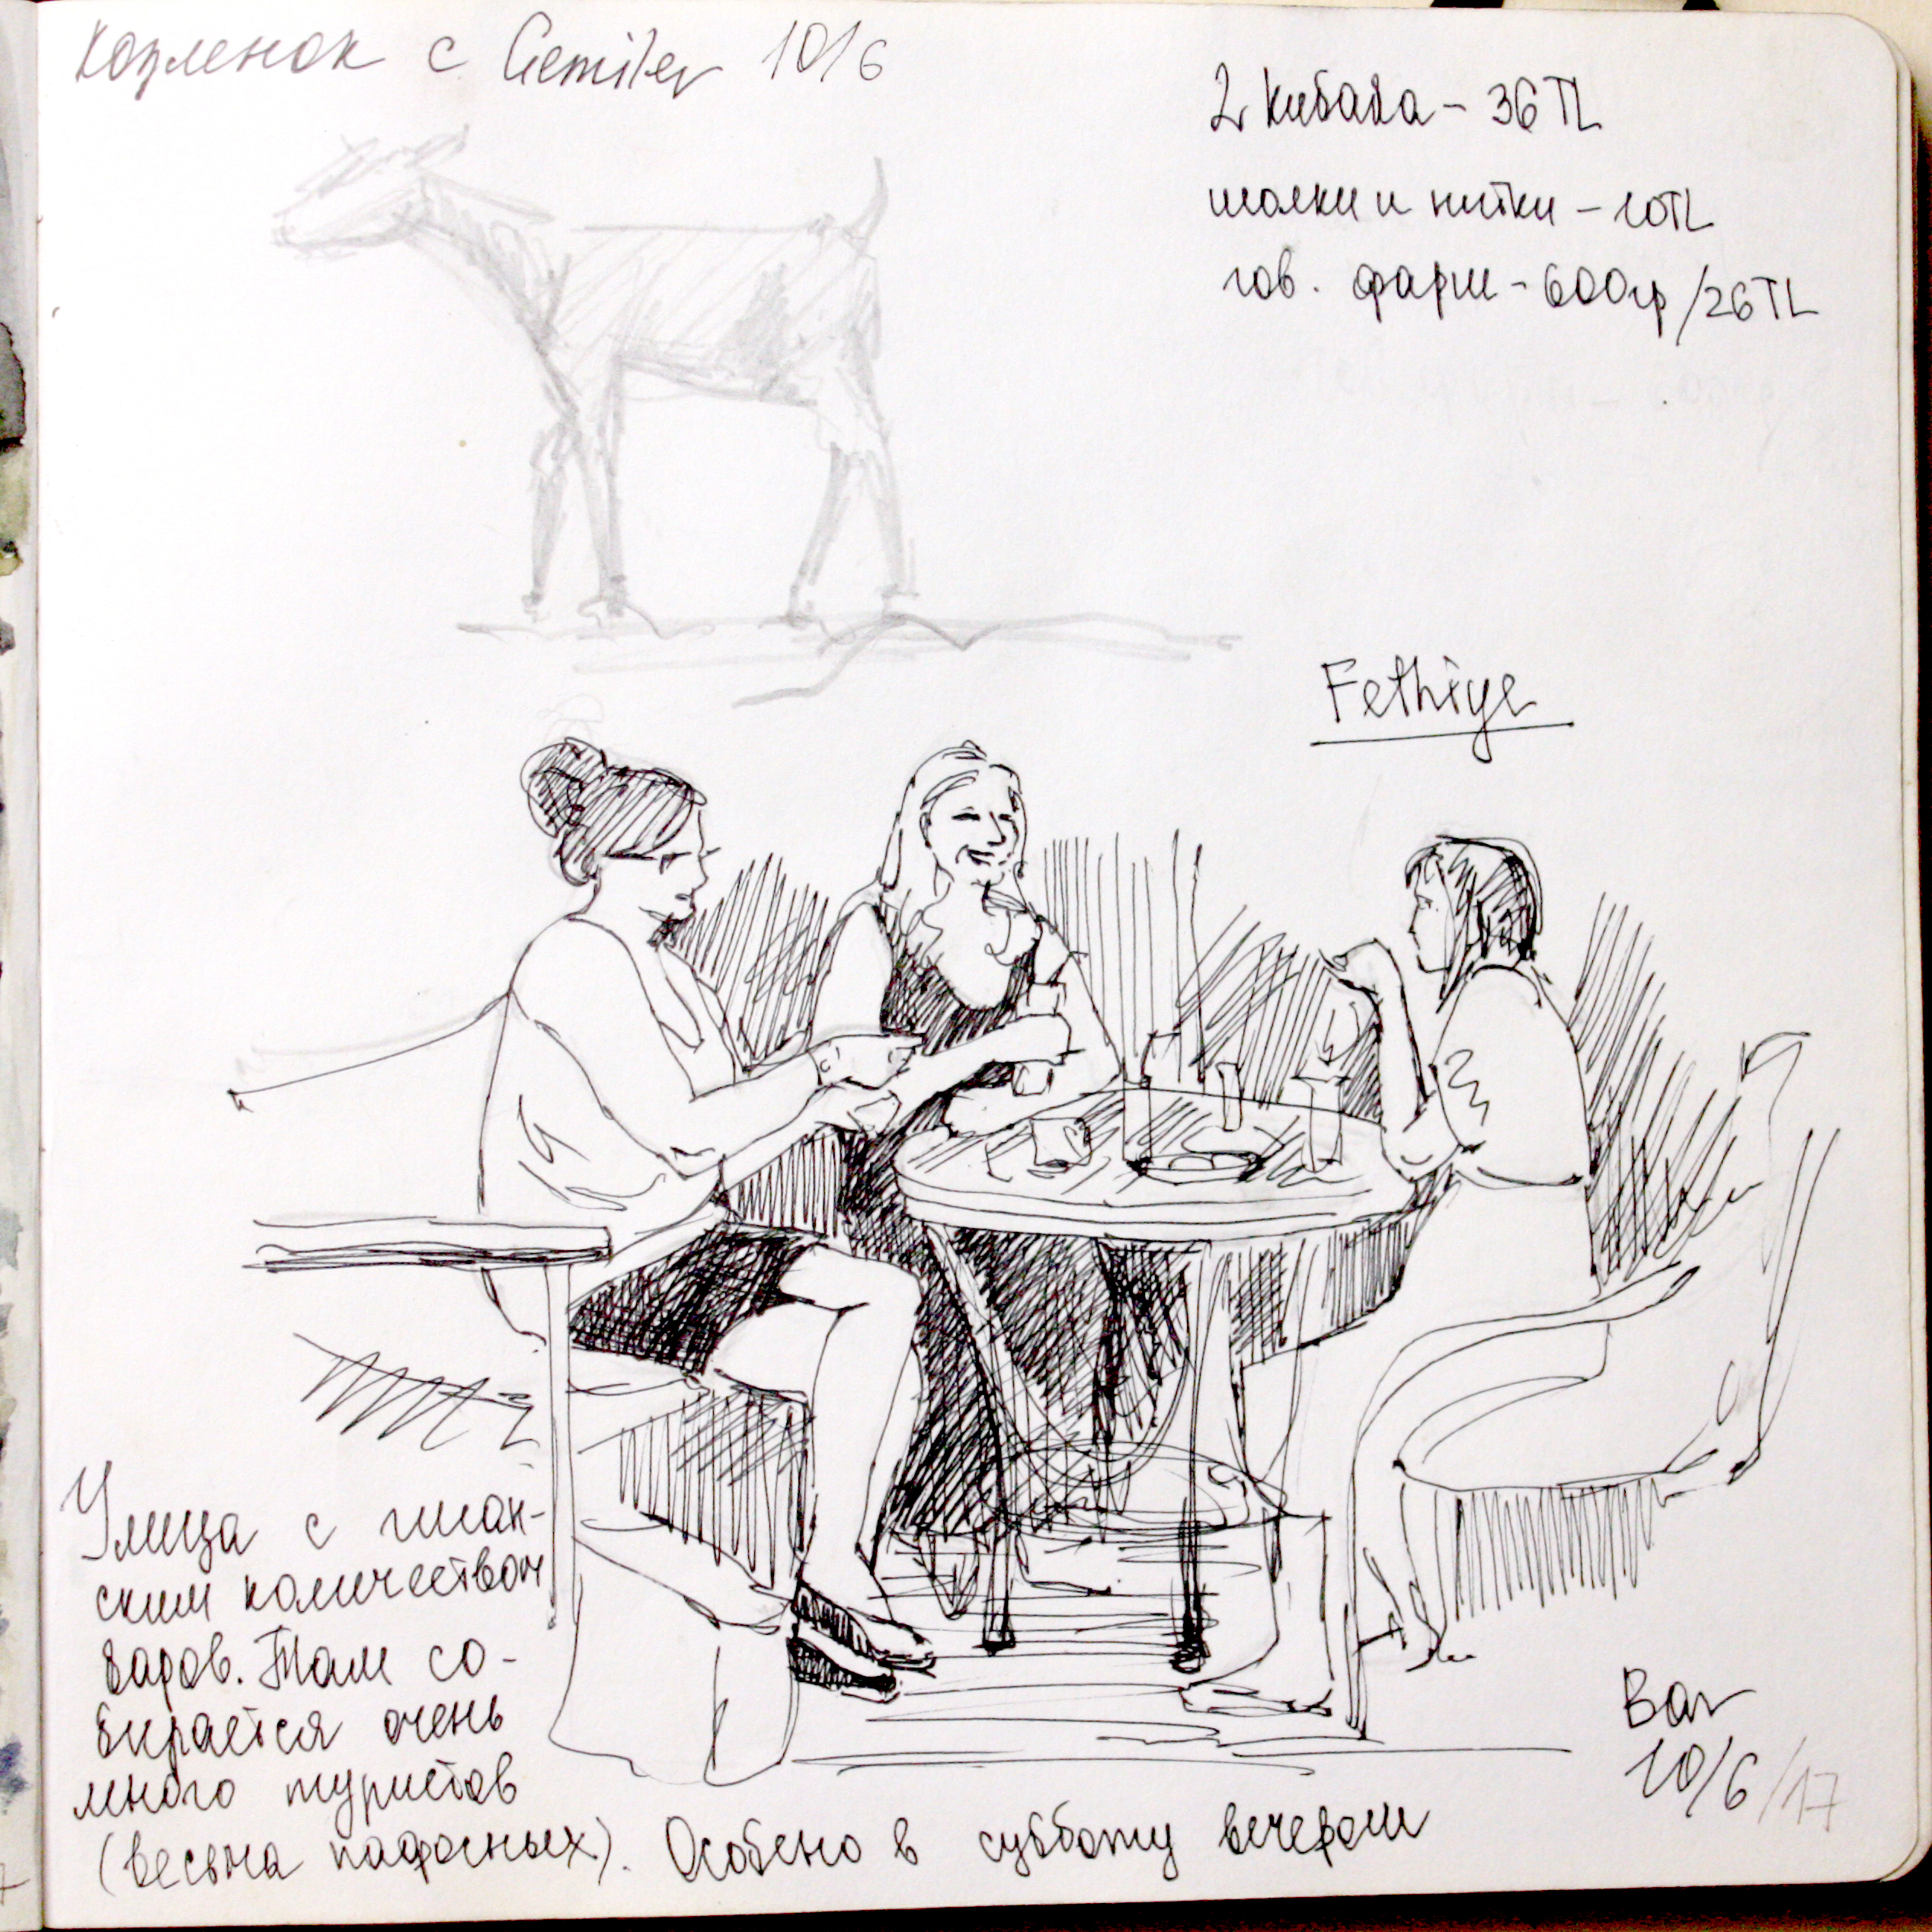 Козленок с Gemiler 10/6
2 кибаба - 36 TL
иголки и нитки - 10TL
гов. фарш - 600гр/26TL
Fethiye
Улица с гиган-
ским количеством
баров. Там со-
бирается очень
много туристов
(весьма пафосных). Особено в субботу вечером
Bar
10/6/17